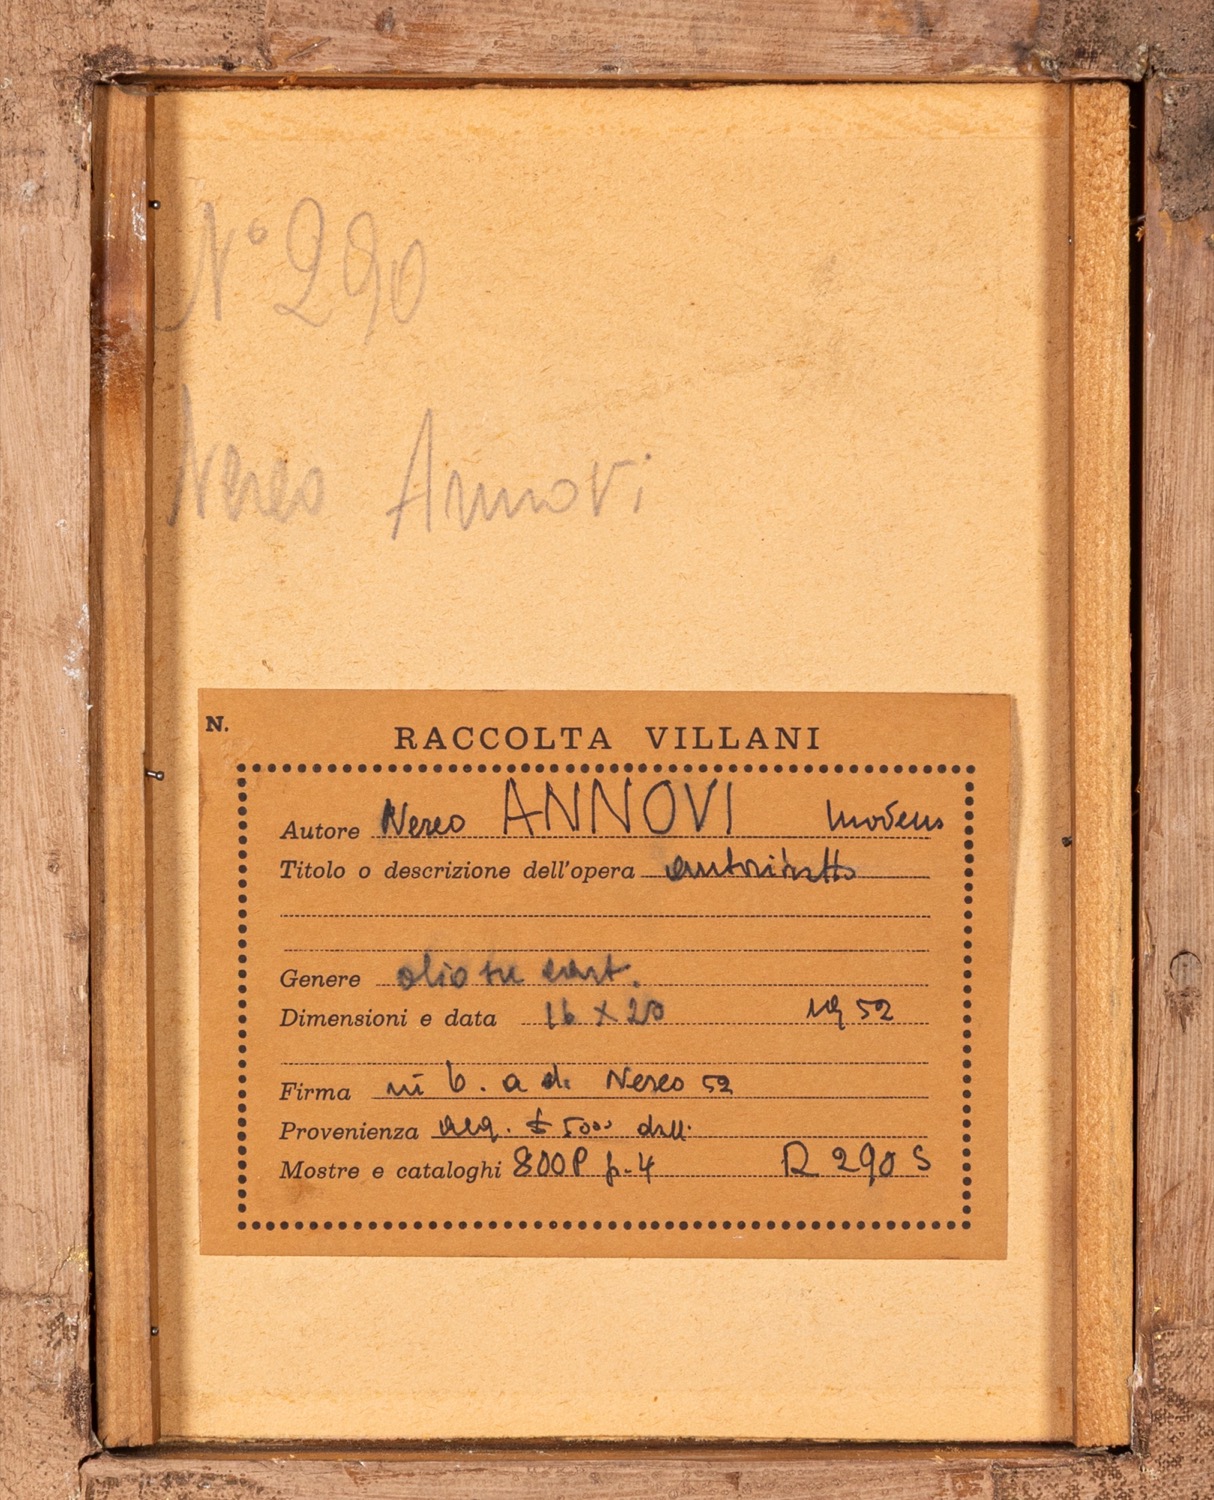 N° 290
Nereo Annovi
N.
RACCOLTA VILLANI
Autore Nereo ANNOVI Modena
Titolo o descrizione dell'opera autoritratto
Genere olio su cart.
Dimensioni e data 16 x 20 1952
Firma in b. a d. Nereo 52
Provenienza acq. £ 5000
Mostre e cataloghi 800P p. 4 R 290 S